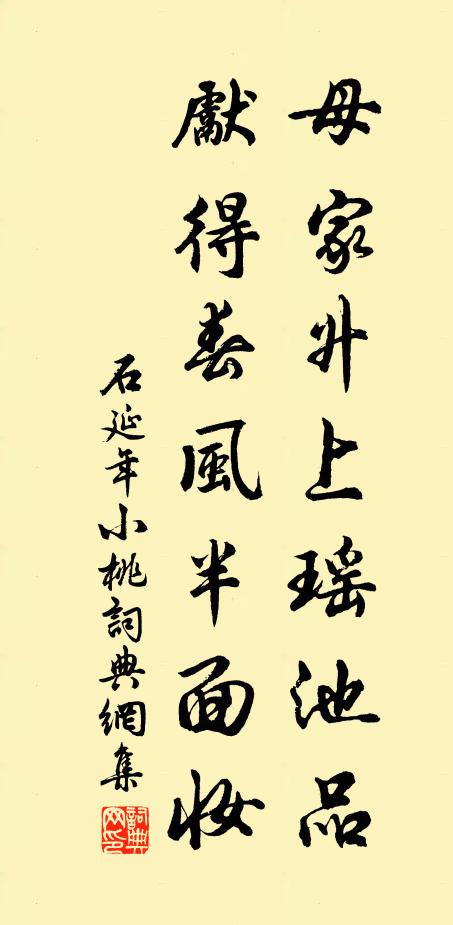 母家升上瑶池品
獻得春風半面妝
石延年小桃詞典網集
詞典网印